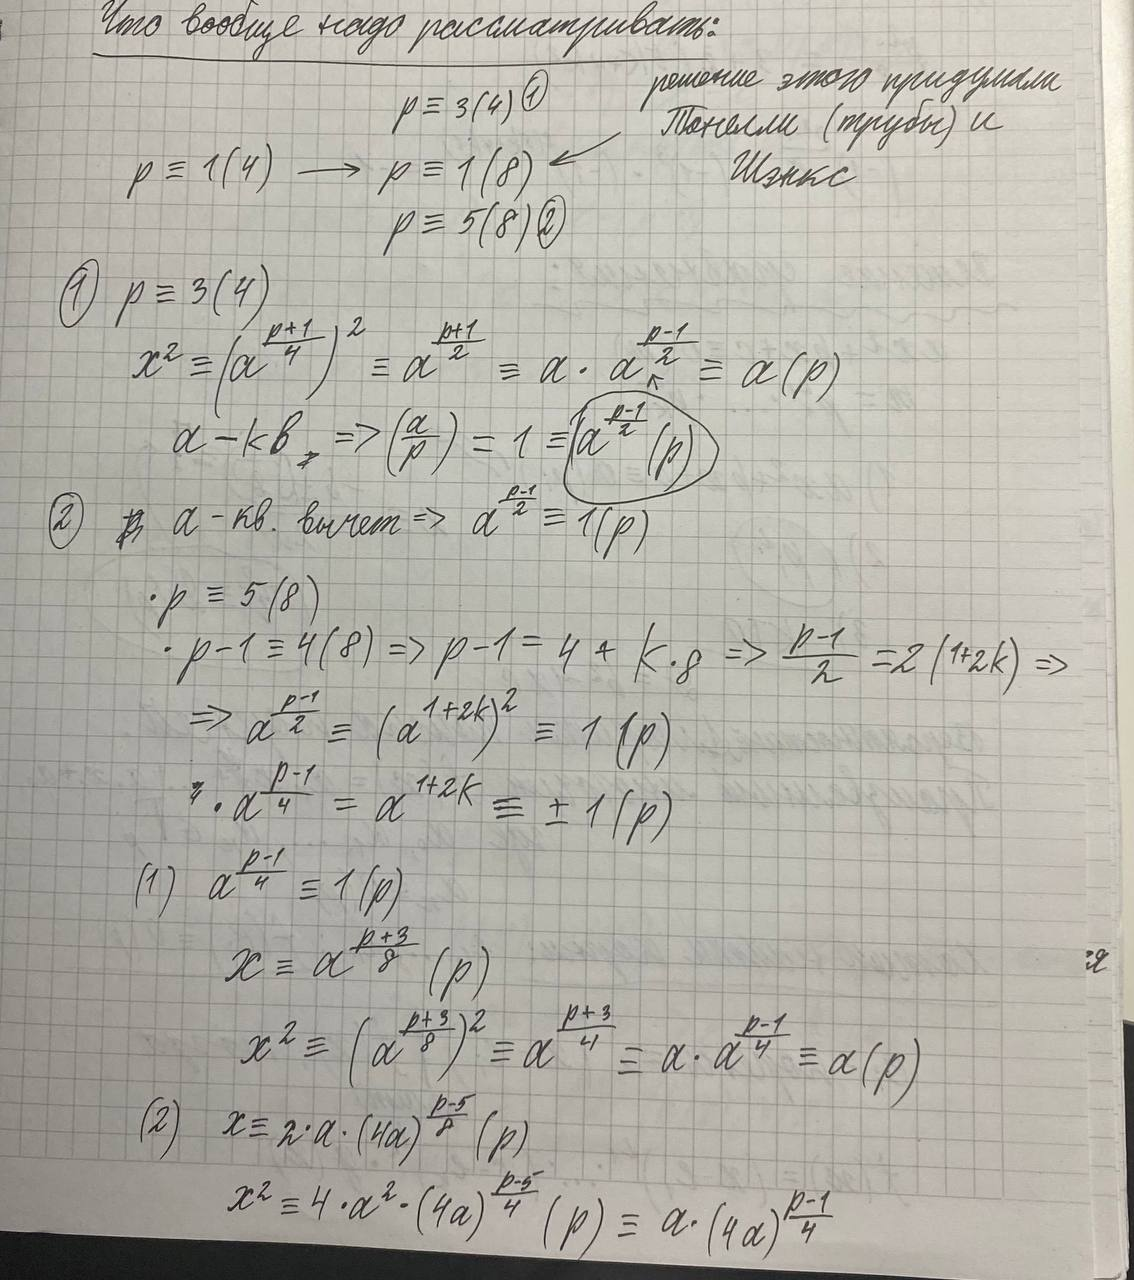 Что вообще надо рассматривать:
p ≡ 3(4) ①
решение этого придумали
Тонелли (трубы) и
Шэнкс
p ≡ 1(4) → p ≡ 1(8) ←
p ≡ 5(8) ②
① p ≡ 3(4)
x² ≡ (a^{\frac{p+1}{4}})² ≡ a^{\frac{p+1}{2}} ≡ a · a^{\frac{p-1}{2}} ≡ a(p)
a – кв => (\frac{a}{p}) = 1 ≡ a^{\frac{p-1}{2}} (p)
② a – кв. вычет => a^{\frac{p-1}{2}} ≡ 1(p)
· p ≡ 5(8)
· p-1 ≡ 4(8) => p-1 = 4 + k·8 => \frac{p-1}{2} = 2(1+2k) =>
=> a^{\frac{p-1}{2}} ≡ (a^{1+2k})² ≡ 1 (p)
· a^{\frac{p-1}{4}} = a^{1+2k} ≡ ± 1(p)
(1) a^{\frac{p-1}{4}} ≡ 1(p)
x ≡ a^{\frac{p+3}{8}} (p)
я
x² ≡ (a^{\frac{p+3}{8}})² ≡ a^{\frac{p+3}{4}} ≡ a · a^{\frac{p-1}{4}} ≡ a(p)
(2) x ≡ 2·a·(4a)^{\frac{p-5}{8}} (p)
x² ≡ 4·a²·(4a)^{\frac{p-5}{4}} (p) ≡ a·(4a)^{\frac{p-1}{4}}